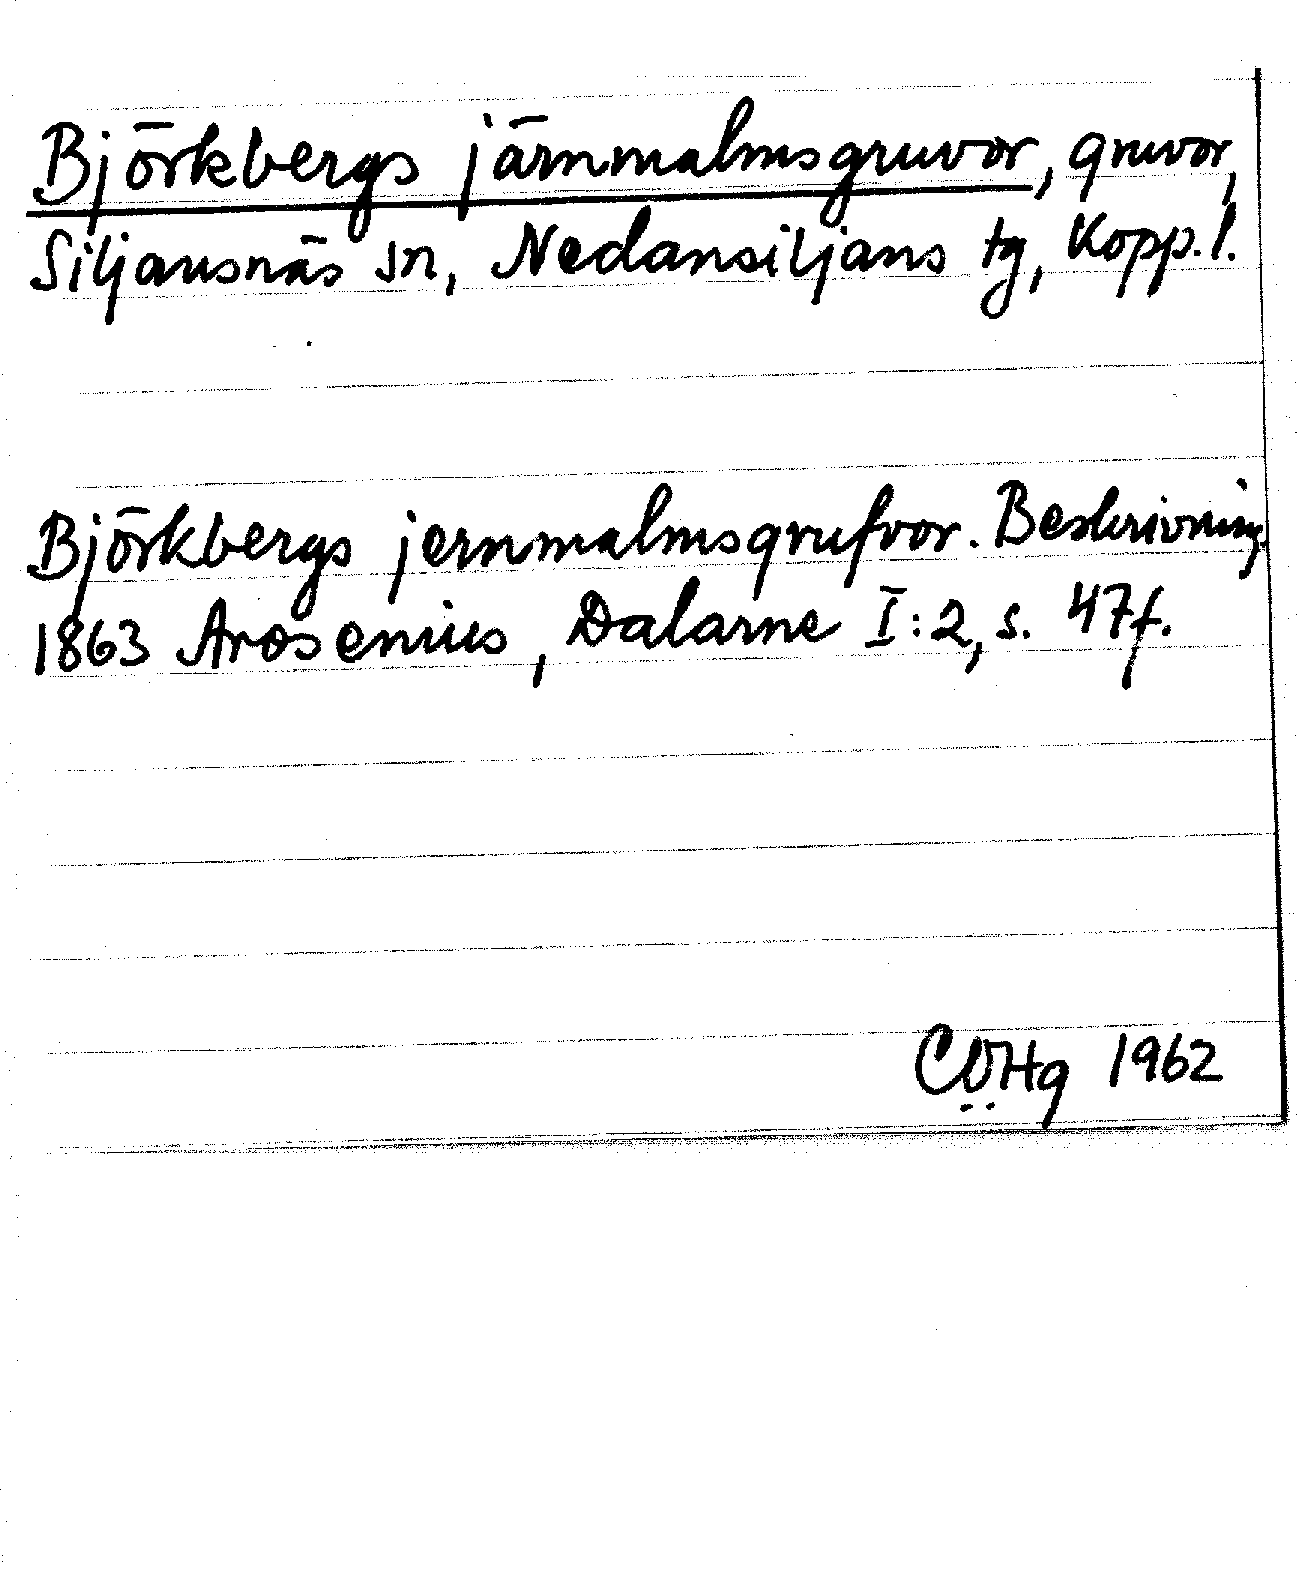 Björkbergs järnmalmsgruvor, gruvor,
Siljansnäs sn, Nedansiljans tg, Kopp. l.
Björkbergs jernmalmsgrufvor. Beskrivning.
1863 Arosenius, Dalarne I:2, s. 47f.
CÖHg 1962